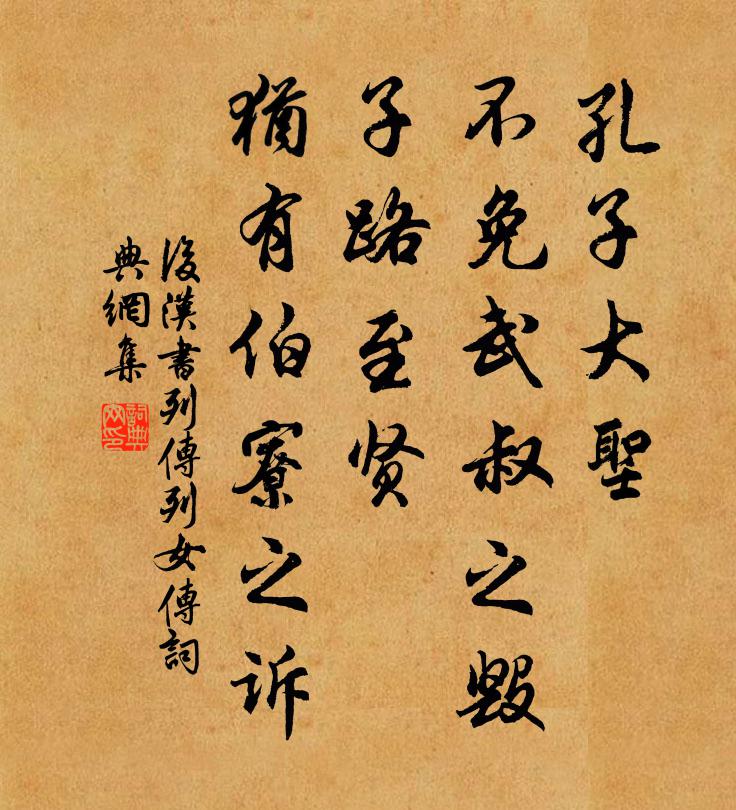 孔子大聖
不免武叔之毀
子路至贤
猶有伯寮之诉
後漢書列傳列女傳詞
典網集
詞典
网印